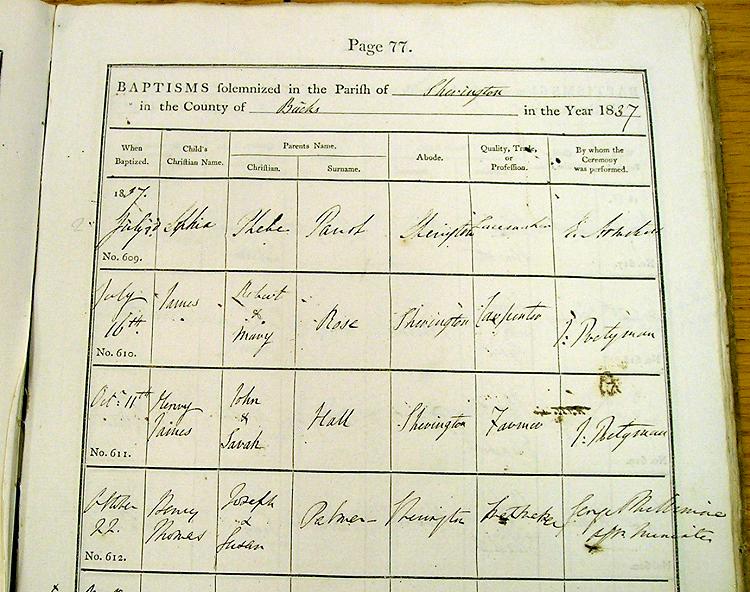 Page 77.
BAPTISMS solemnized in the Parish of Sherington
in the County of Bucks in the Year 1837
When Baptized. Child's Christian Name. Parents Name. Abode. Quality, Trade, or Profession. By whom the Ceremony was performed.
Christian. Surname.
1837.
July Sophia Phebe Sherington Lacemaker
No. 609.
July 16th. James Robert & Mary Rose Sherington Carpenter J: Pretyman
No. 610.
Octr. 11th Henry James John & Sarah Hall Sherington Farmer J: Pretyman
No. 611.
October 22. Henry Thomas Joseph & Susan Palmer Sherington George Phillimore
No. 612.